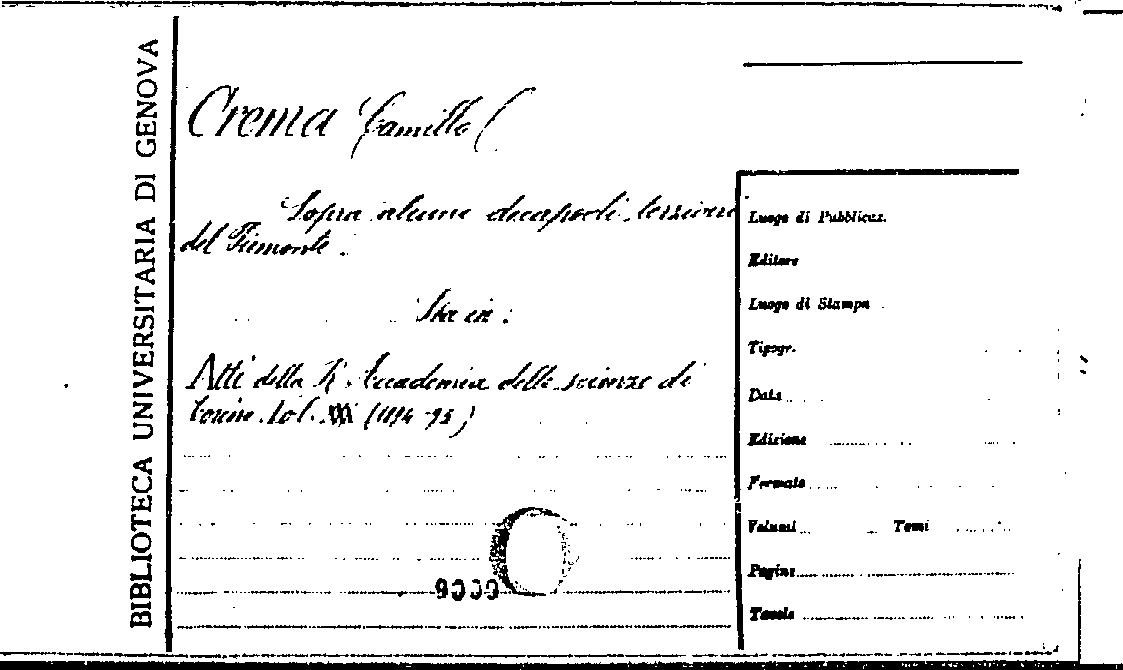 BIBLIOTECA UNIVERSITARIA DI GENOVA
Crema Camillo (
Sopra alcuni decapodi terziari
del Piemonte.
Sta in:
Atti della R. Accademia delle scienze di
Torino. Vol. (1894-95)
9000
Luogo di Pubblicaz.
Editore
Luogo di Stampa
Tipogr.
Data
Edizione
Formato
Volumi Tomi
Pagine
Tavole